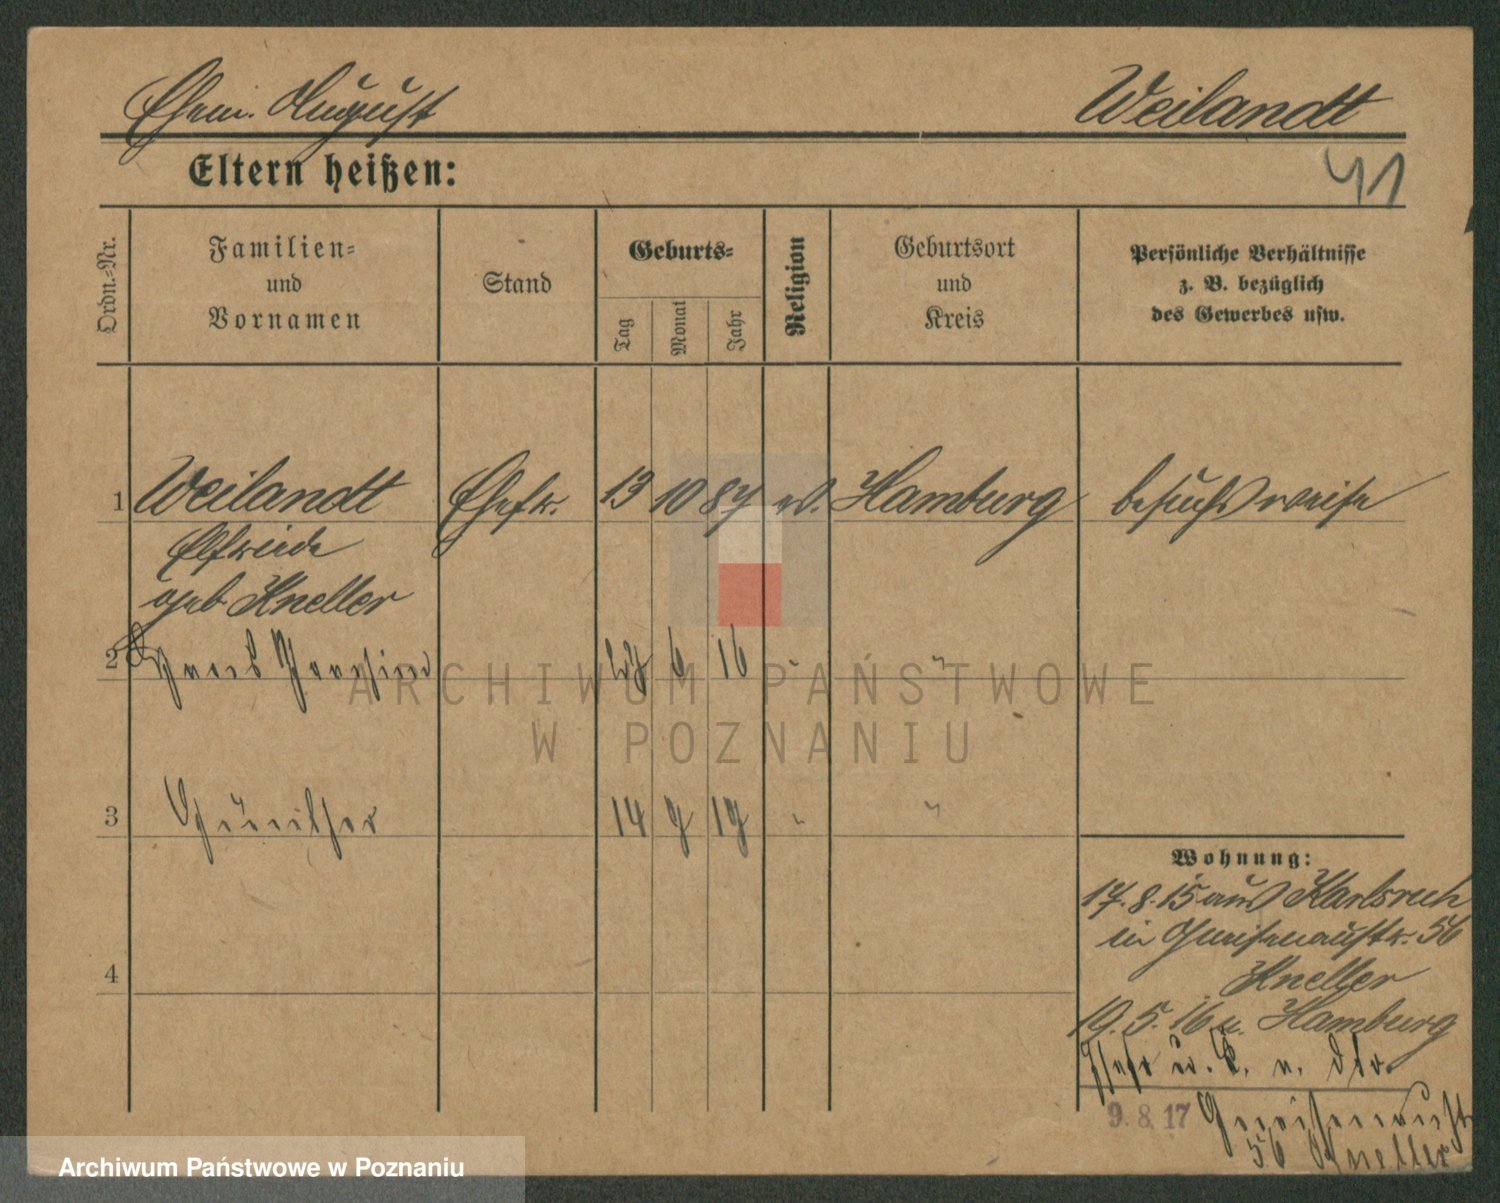 Ehem. August Weilandt
Eltern heißen:
41
Ordn.=Nr.
Familien=
und
Vornamen
Stand
Geburts=
Tag
Monat
Jahr
Religion
Geburtsort
und
Kreis
Persönliche Verhältnisse
z. B. bezüglich
des Gewerbes usw.
1 Weilandt Ehefr. 13 10 87 ev. Hamburg besuchsweise
Elfriede
geb Kneller
2 6 16 " "
3 Günther 14 7 17 " "
4
Wohnung:
17.8.15 aus Karlsruh
in Gneisenaustr. 56
Kneller
19.5.16 n. Hamburg
9.8.17 Gneisenaustr
56 Kneller
ARCHIWUM PAŃSTWOWE
W POZNANIU
Archiwum Państwowe w Poznaniu